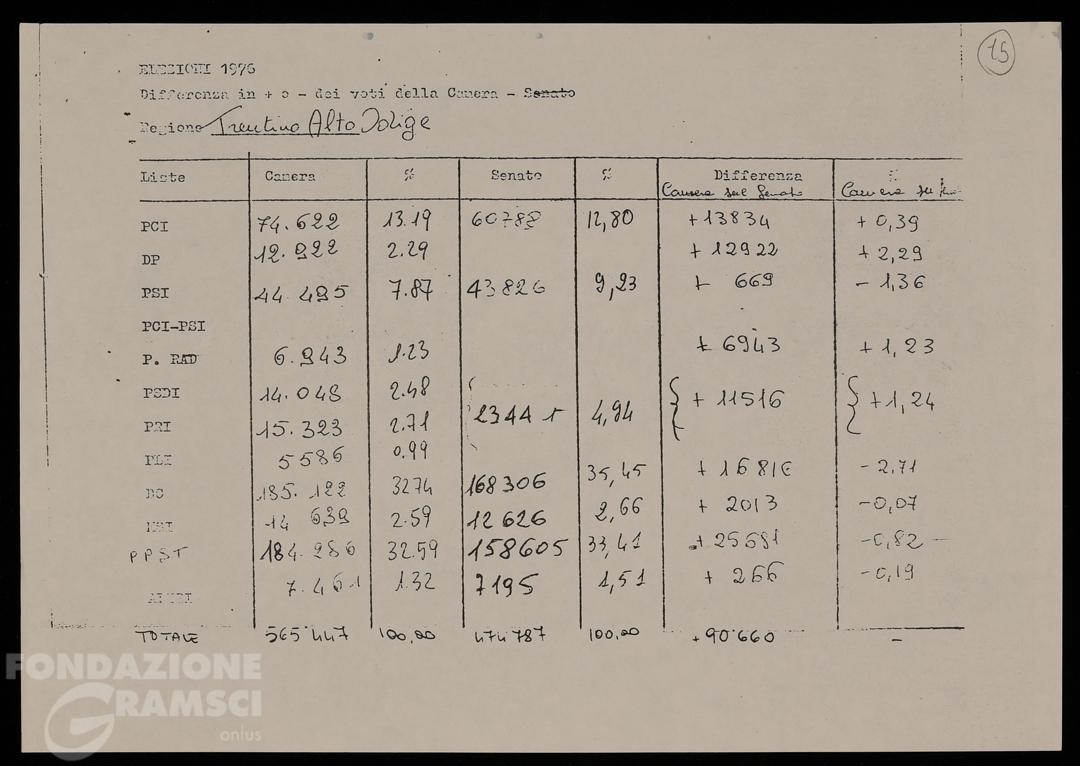 15
ELEZIONI 1976
Differenza in + o - dei voti della Camera - Senato
Regione Trentino Alto Adige
Liste Camera % Senato % Differenza %
Camera sul Senato Camera sul
PCI 74.622 13.19 60788 12,80 +13834 + 0,39
DP 12.922 2.29 + 12922 + 2,29
PSI 44.495 7.87 43826 9,23 + 669 - 1,36
PCI-PSI
P. RAD 6.943 1.23 + 6943 + 1,23
PSDI 14.048 2.48
4,94 + 11516 +1,24
PRI 15.323 2.71
PLI 5586 0.99
DC 185.122 3274 168306 35,45 + 16816 - 2,71
MSI 14 639 2.59 12626 2,66 + 2013 -0,07
PPST 184.286 32.59 158605 33,41 + 25681 -0,82
ALTRI 7.461 1.32 7195 1,51 + 266 -0,19
TOTALE 565.447 100,00 474787 100,00 +90.660 -
FONDAZIONE
GRAMSCI
onlus